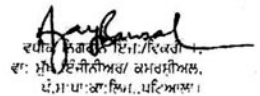 ਵਧੀਕ ਨਿਗਰਾਨ ਇੰਜੀ:/ਵਿਕਰੀ-1,
ਵਾ: ਮੁੱਖ ਇੰਜੀਨੀਅਰ/ ਕਮਰਸ਼ੀਅਲ,
ਪੰ.ਸਾ.ਪਾ.ਕਾ:ਲਿਮ:,ਪਟਿਆਲਾ।